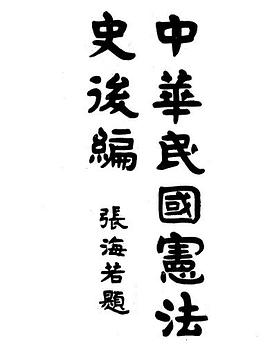 中華民國憲法
史後編
張海若題